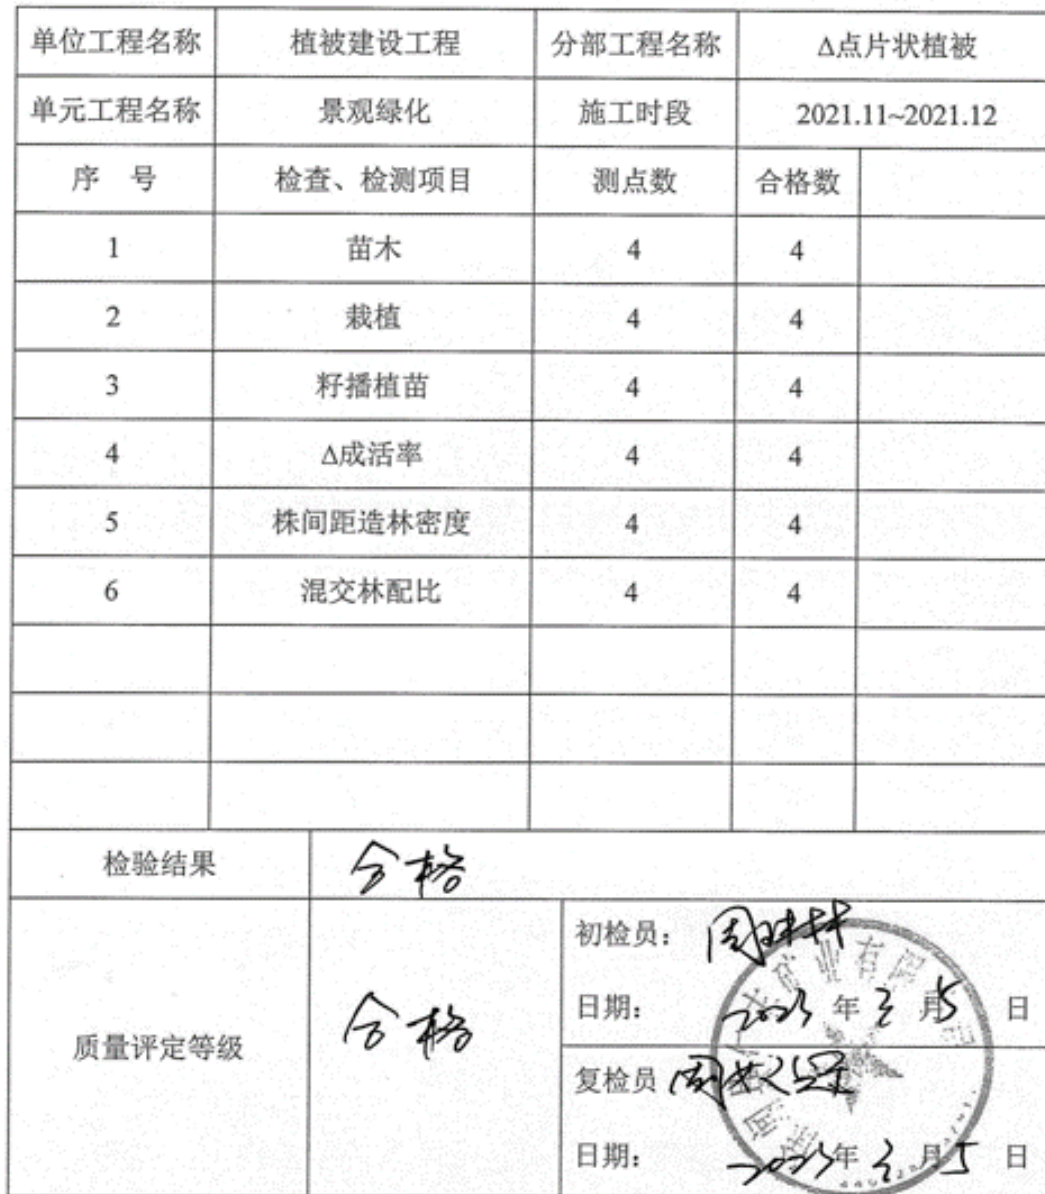 单位工程名称 植被建设工程 分部工程名称 Δ点片状植被
单元工程名称 景观绿化 施工时段 2021.11~2021.12
序 号 检查、检测项目 测点数 合格数
1 苗木 4 4
2 栽植 4 4
3 籽播植苗 4 4
4 Δ成活率 4 4
5 株间距造林密度 4 4
6 混交林配比 4 4
检验结果 合格
初检员：
日期： 年 月5日
质量评定等级 合格
复检员
日期： 年 月5日
矿业有限